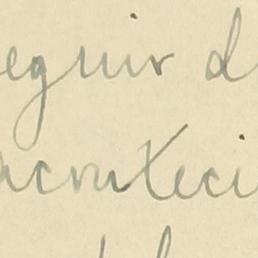 eguir d
aconteci